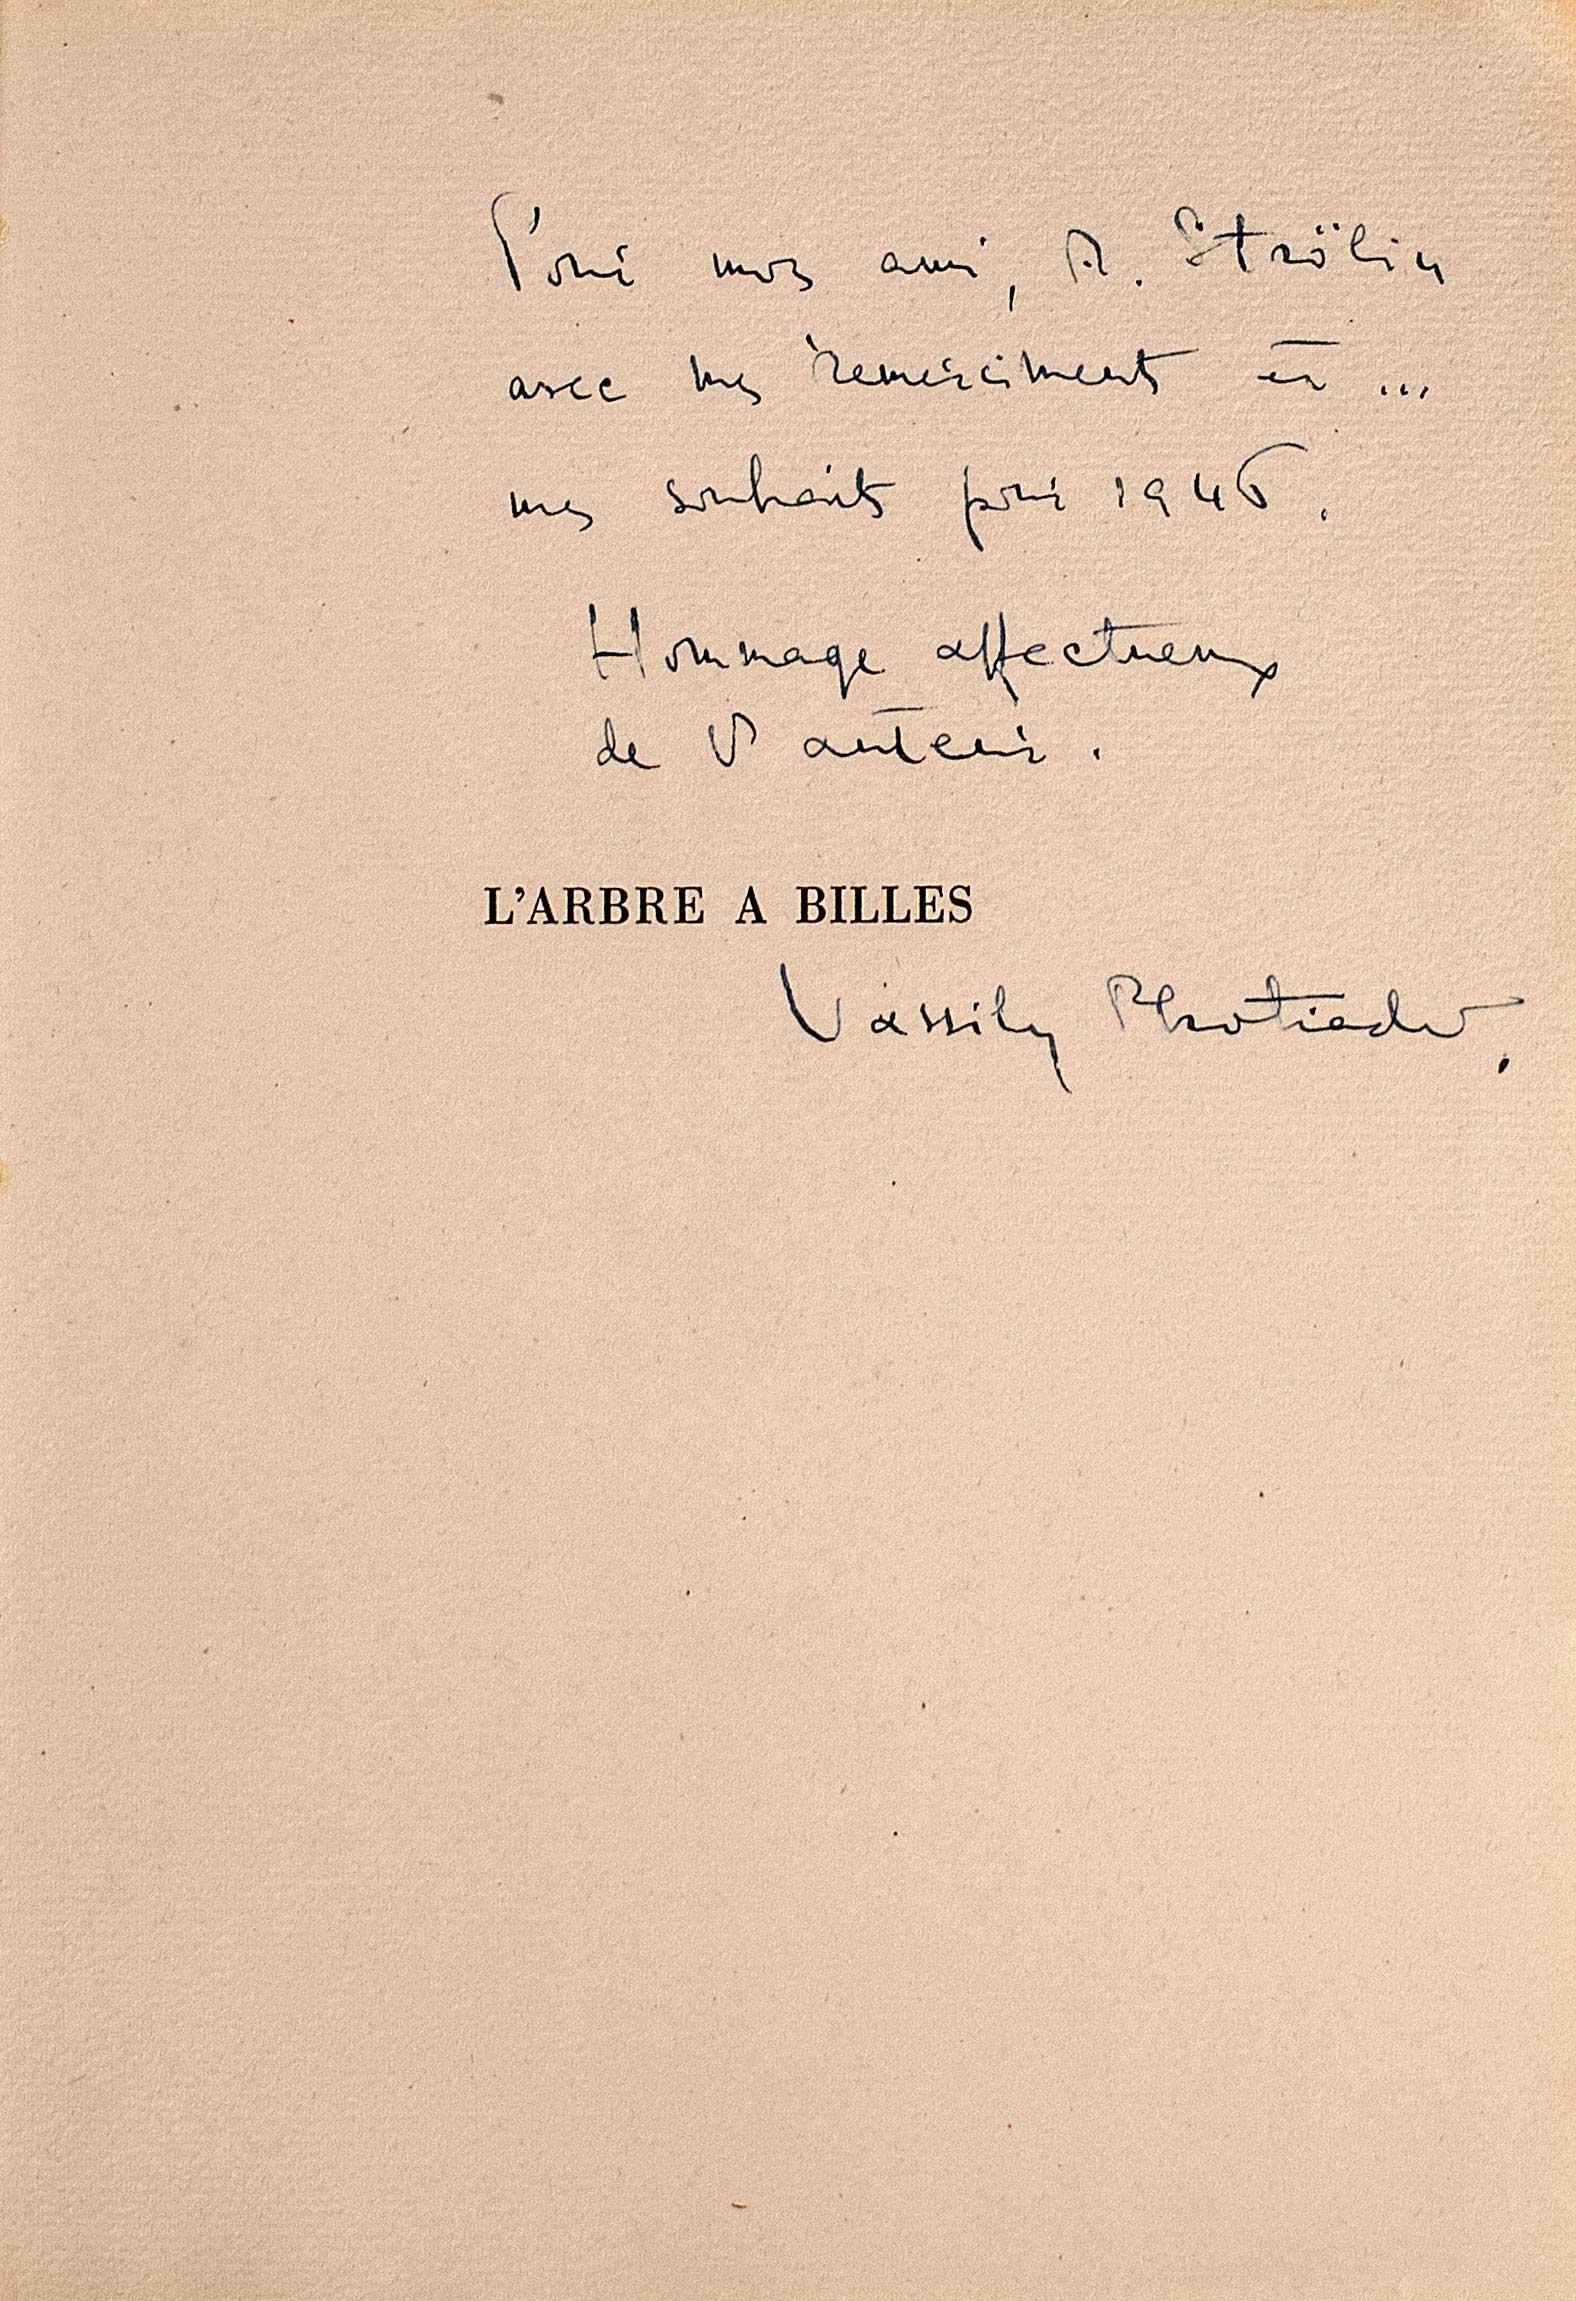 Pour mon ami, A. Strölin
avec mes remerciments et ...
mes souhaits pour 1946.
Hommage affectueux
de l'auteur.
L'ARBRE A BILLES
Vassily Photiadès.